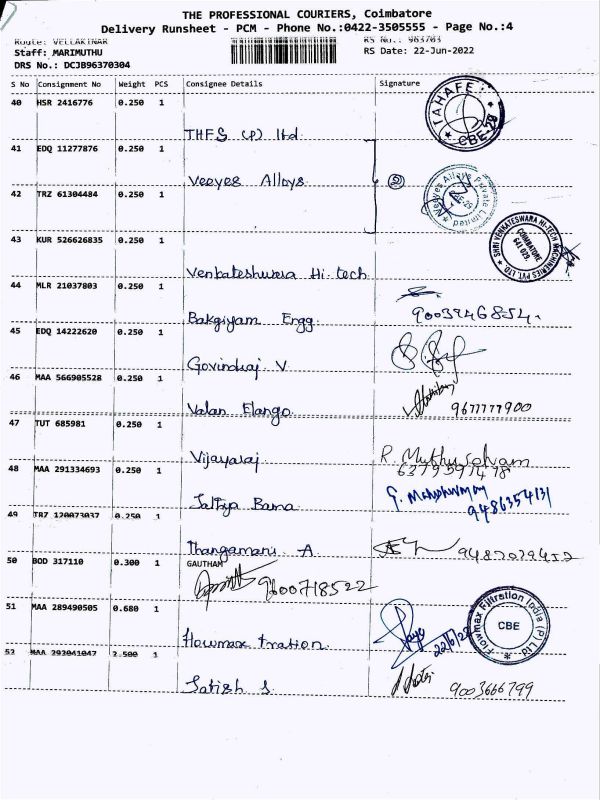 THE PROFESSIONAL COURIERS, Coimbatore
Delivery Runsheet - PCM - Phone No.:0422-3505555 - Page No.:4
Route: VELLAKINAR RS No.: 963703
Staff: MARIMUTHU RS Date: 22-Jun-2022
DRS No.: DCJB96370304
S No Consignment No Weight PCS Consignee Details Signature
40 HSR 2416776 0.250 1
THFS (P) ltd
TAHAFE CBE-29
41 EDQ 11277876 0.250 1
Veeyes Alloys
②
Veeyes Alloys Private Limited
42 TRZ 61304484 0.250 1
43 KUR 526626835 0.250 1
Venkateshwara Hi-tech
SHRI VENKATESWARA HI-TECH MACHINERIES PVT. LTD.
COIMBATORE
641 029.
44 MLR 21037803 0.250 1
Bakgiyam Engg
45 EDQ 14222620 0.250 1
Govindraj V
46 MAA 566905528 0.250 1
Valan Elango 9677777900
47 TUT 685981 0.250 1
Vijayaraj R. Muthuselvam
48 MAA 291334693 0.250 1
Sathya Bama
9486354131
49 TRZ 120073037 0.250 1
Thangamani A
50 BOD 317110 0.300 1 GAUTHAM
9600718522
51 MAA 289490505 0.680 1
Flowmax tration 22/6/22
Flowmax Filtration India (P) Ltd
CBE
52 MAA 292041047 2.500 1
Satish S 9003666799